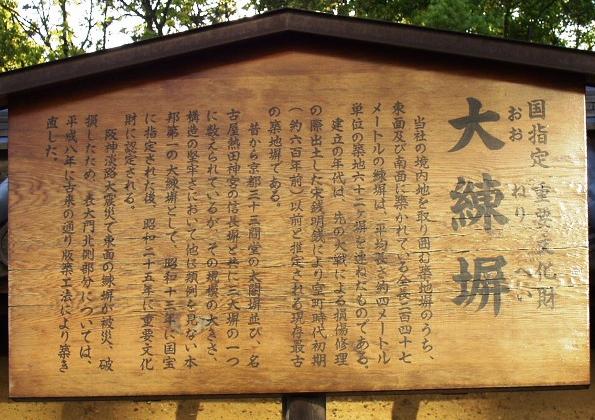 国指定 重要文化財
おお ねり へい
大練塀
当社の境内地を取り囲む築地塀のうち、
東面及び南面に築かれている全長二百四十七
メートルの練塀は、平均長さ約四メートル
単位の築地六十二ヶ塀を連ねたものである。
建立の年代は、先の大戦による損傷修理
の際出土した宋銭明銭により室町時代初期
(約六百年前)以前と推定される現存最古
の築地塀である。
昔から京都三十三間堂の太閤塀並び、名
古屋熱田神宮の信長塀と共に三大塀の一つ
に数えられているが、その規模の大きさ、
構造の堅牢さにおいて他に類例を見ない本
邦第一の大練塀として、昭和十三年に国宝
に指定された後、昭和二十五年に重要文化
財に認定される。
阪神淡路大震災で東面の練塀が被災、破
損したため、表大門北側部分については、
平成八年に古来の通り版築工法により築き
直した。